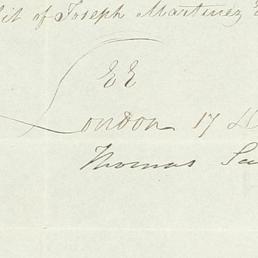 it of Joseph Martinez
EE
London 17
Thomas